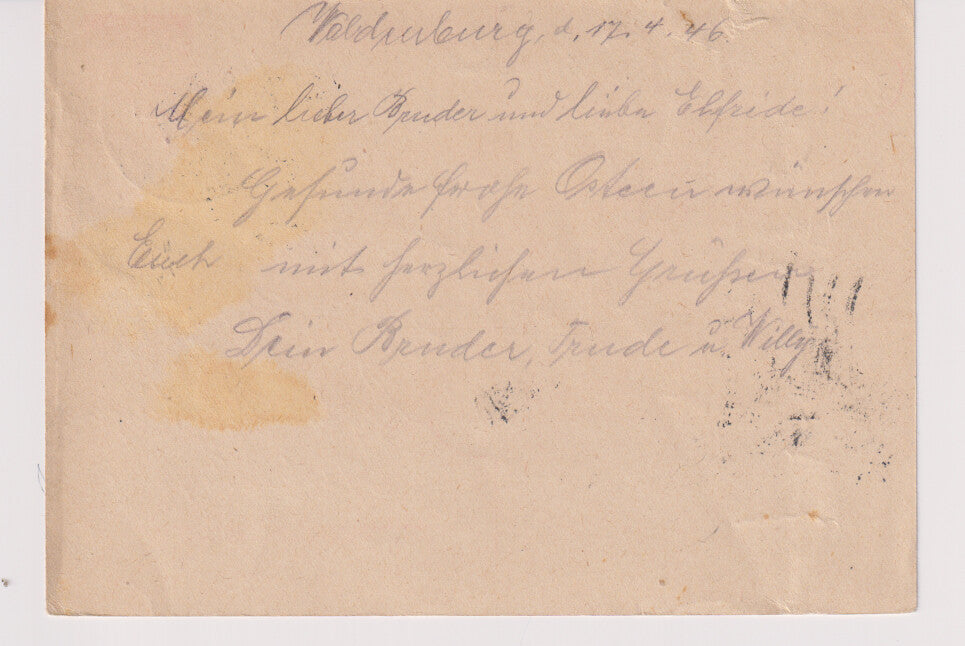 Waldenburg, d. 17. 4. 46.
Mein lieber Bruder und liebe Elfriede!
Gesunde frohe Ostern wünschen
Euch mit herzlichen Grüßen
Dein Bruder, Trude u. Willy